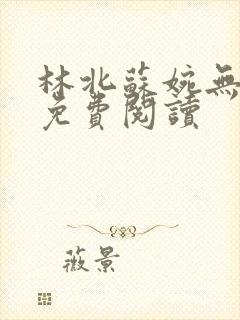 林北蘇婉無
免費閱讀
薇景